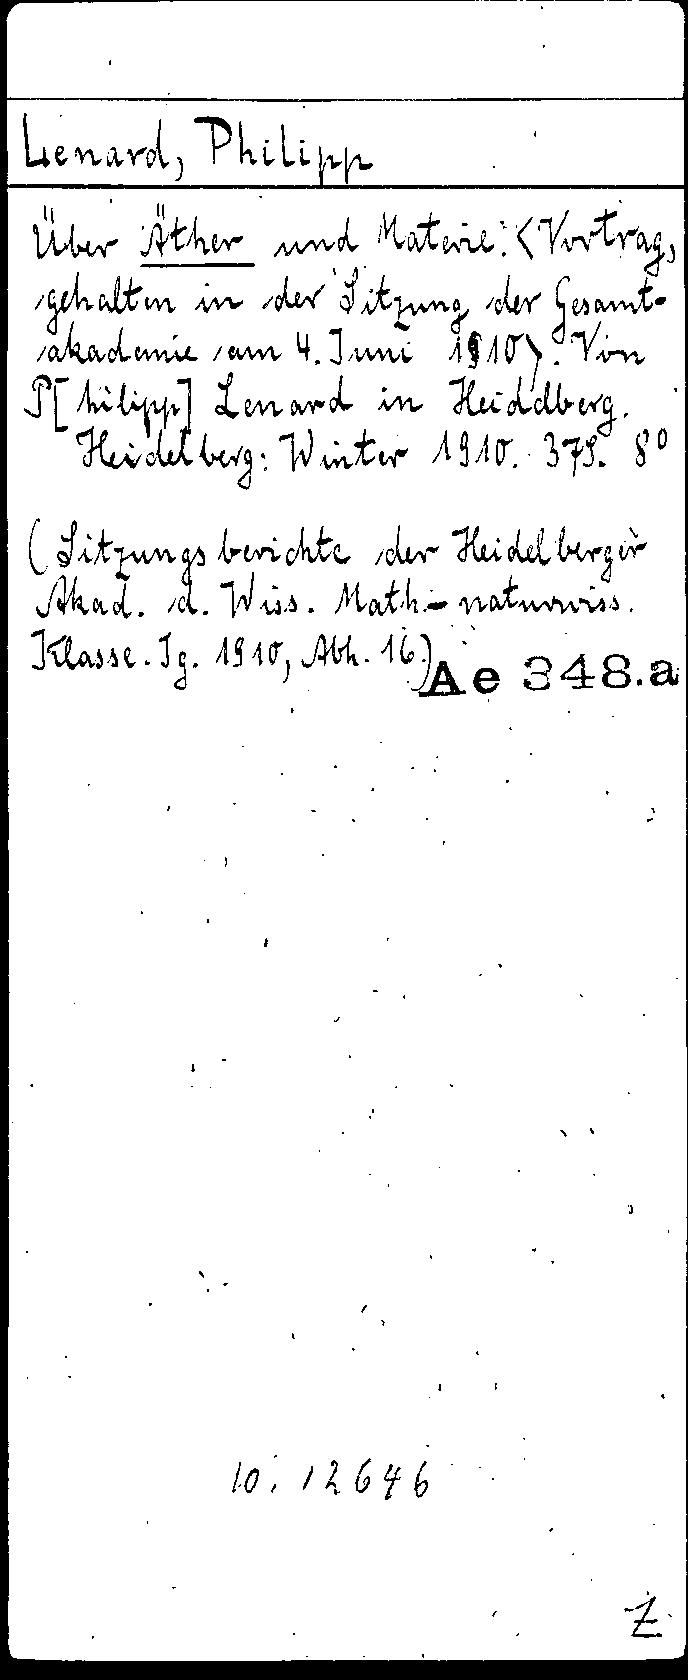 Lenard, Philipp
Über Äther und Materie. <Vortrag,
gehalten in der Sitzung der Gesamt-
akademie am 4. Juni 1910>. Von
P[hilipp] Lenard in Heidelberg.
Heidelberg: Winter 1910. 37S. 8°
(Sitzungsberichte der Heidelberger
Akad. d. Wiss. Math.-naturwiss.
Klasse. Jg. 1910, Abh. 16)
Ae 348.a
10. 12646
Z